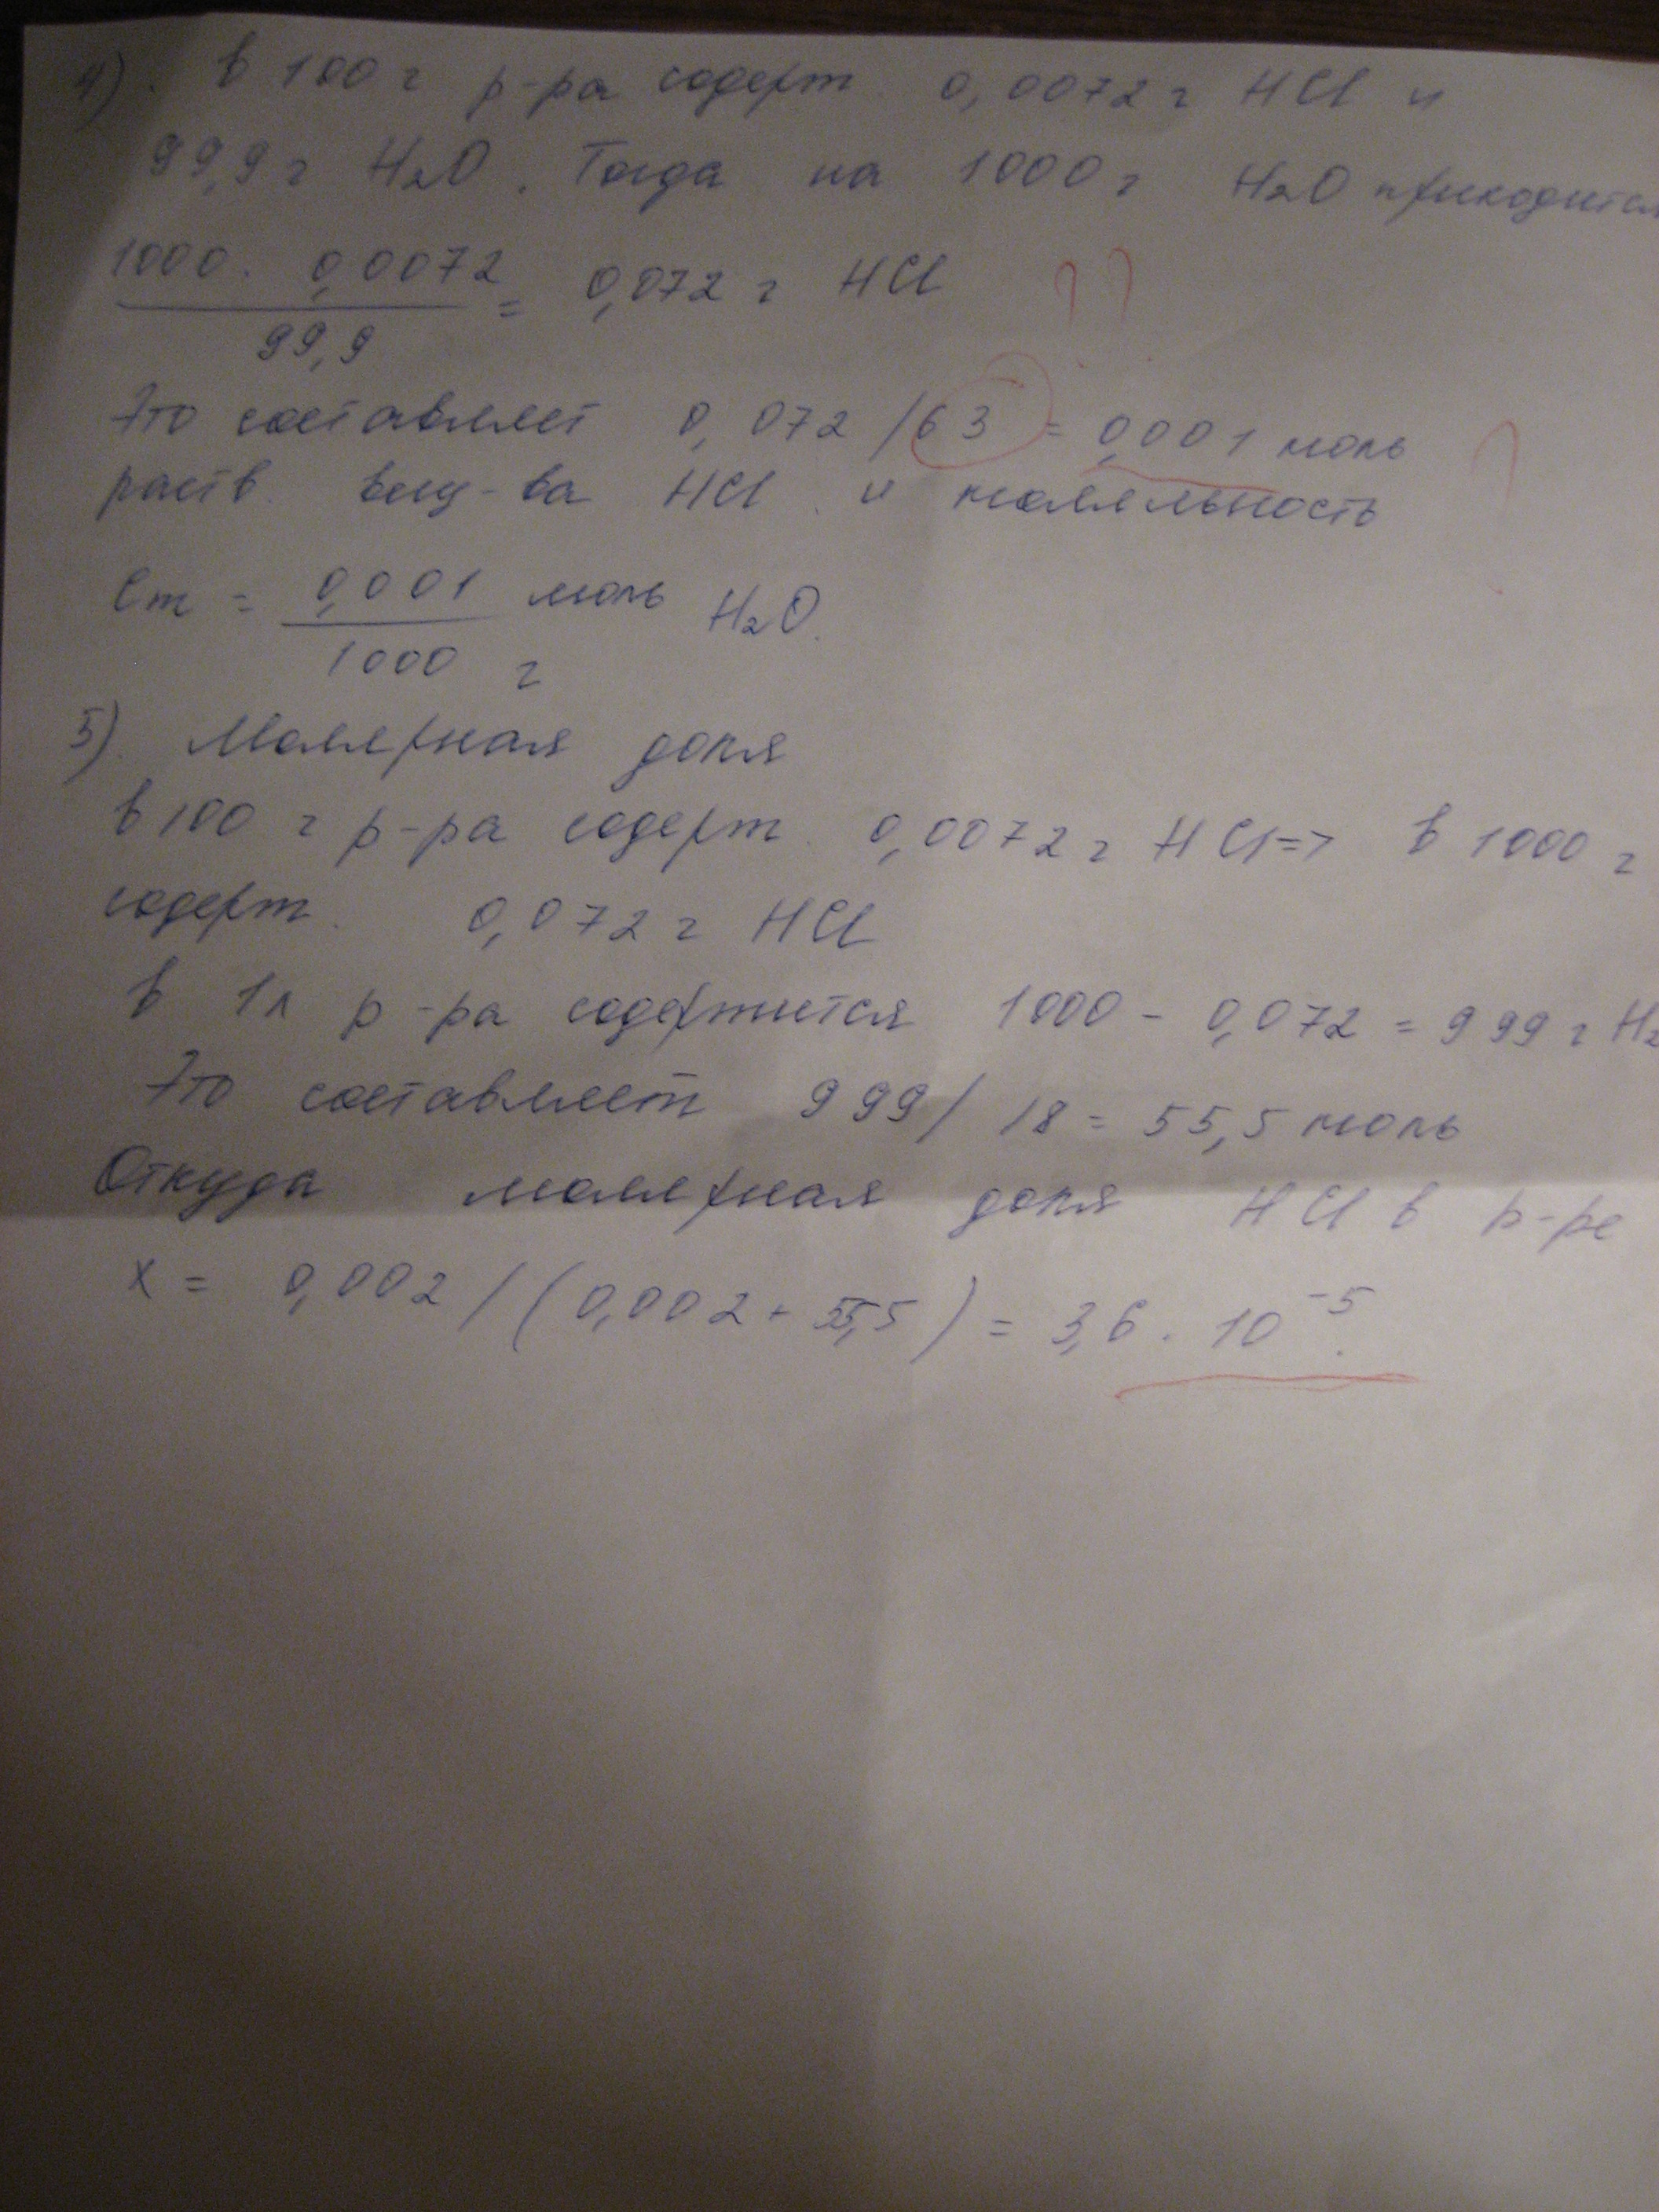 4). В 100 г р-ра содерж. 0,0072 г HCl и
99,9 г H₂O. Тогда на 1000 г H₂O приходится
1000 · 0,0072 / 99,9 = 0,072 г HCl ??
Это составляет 0,072 /63 = 0,001 моль ?
раств. вещ-ва HCl и моляльность
Cm = 0,001 моль / 1000 г H₂O.
5). Молярная доля
в 100 г р-ра содерж. 0,0072 г HCl => в 1000 г
содерж. 0,072 г HCl
В 1л р-ра содержится 1000 - 0,072 = 999 г H₂
Это составляет 999/ 18 = 55,5 моль
Откуда молярная доля HCl в р-ре
x = 0,002 / (0,002 + 55,5) = 3,6 · 10⁻⁵.